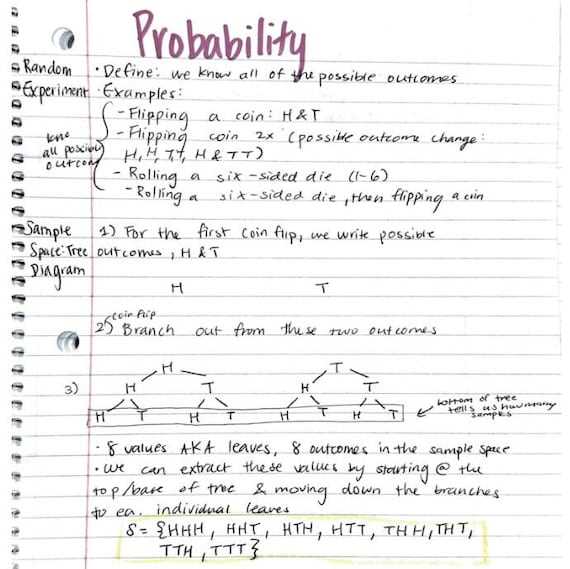 Probability
Random
Experiment
• Define: we know all of the possible outcomes
• Examples:
- Flipping a coin: H & T
- Flipping coin 2x (possible outcome change:
H, H, TT, H & TT)
all possible
outcom
- Rolling a six-sided die (1-6)
- Rolling a six-sided die, then flipping a coin
Sample
Space: Tree
Diagram
1) For the first coin flip, we write possible
outcomes, H & T
H T
coin flip
2) Branch out from these two outcomes
3)
H T
H T H T
H T H T H T H T
bottom of tree
tells us how many
samples
• 8 values AKA leaves, 8 outcomes in the sample space
• we can extract these values by starting @ the
top/base of tree & moving down the branches
to ea. individual leaves
S = {HHH, HHT, HTH, HTT, THH, THT,
TTH, TTT}